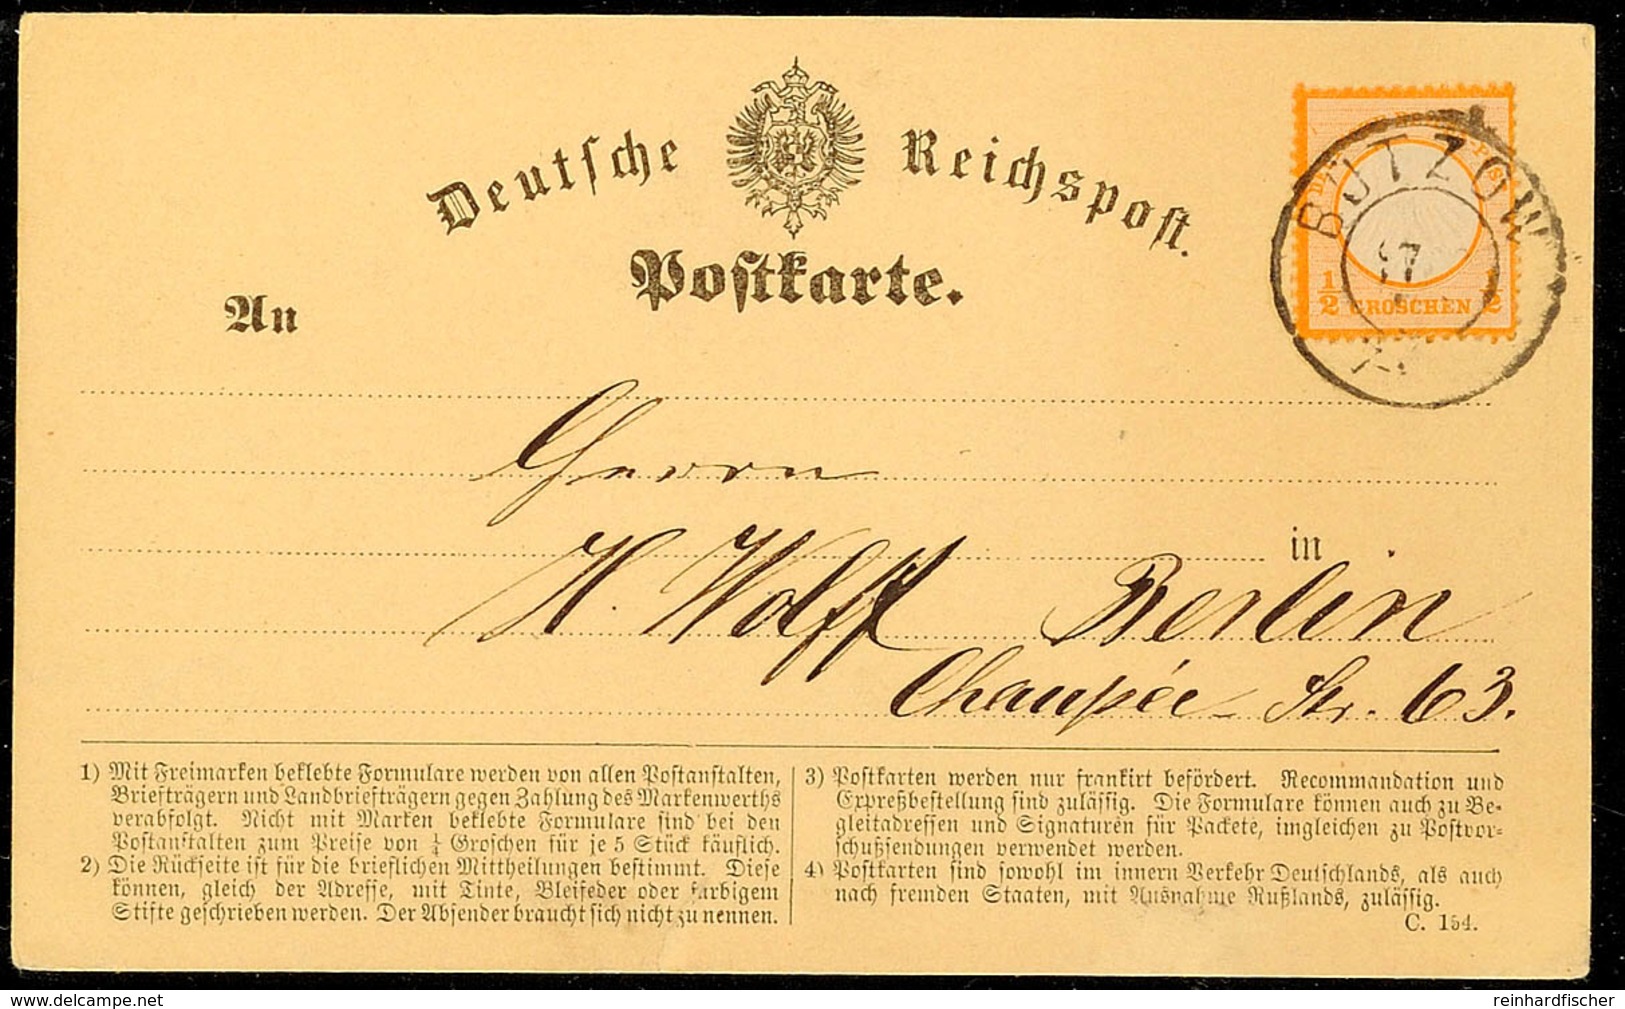 Deutsche Reichspost.
Postkarte.
An
BÜTZOW
17
1/2 GROSCHEN 1/2
Herrn
in
H. Wolff Berlin
Chaussée Str. 63.
1) Mit Freimarken beklebte Formulare werden von allen Postanstalten,
Briefträgern und Landbriefträgern gegen Zahlung des Markenwerths
verabfolgt. Nicht mit Marken beklebte Formulare sind bei den
Postanstalten zum Preise von ¼ Groschen für je 5 Stück käuflich.
2) Die Rückseite ist für die brieflichen Mittheilungen bestimmt. Diese
können, gleich der Adresse, mit Tinte, Bleifeder oder farbigem
Stifte geschrieben werden. Der Absender braucht sich nicht zu nennen.
3) Postkarten werden nur frankirt befördert. Recommandation und
Expreßbestellung sind zulässig. Die Formulare können auch zu Be-
gleitadressen und Signaturen für Packete, imgleichen zu Postvor-
schußsendungen verwendet werden.
4) Postkarten sind sowohl im innern Verkehr Deutschlands, als auch
nach fremden Staaten, mit Ausnahme Rußlands, zulässig.
C. 154.
www.delcampe.net
reinhardfischer